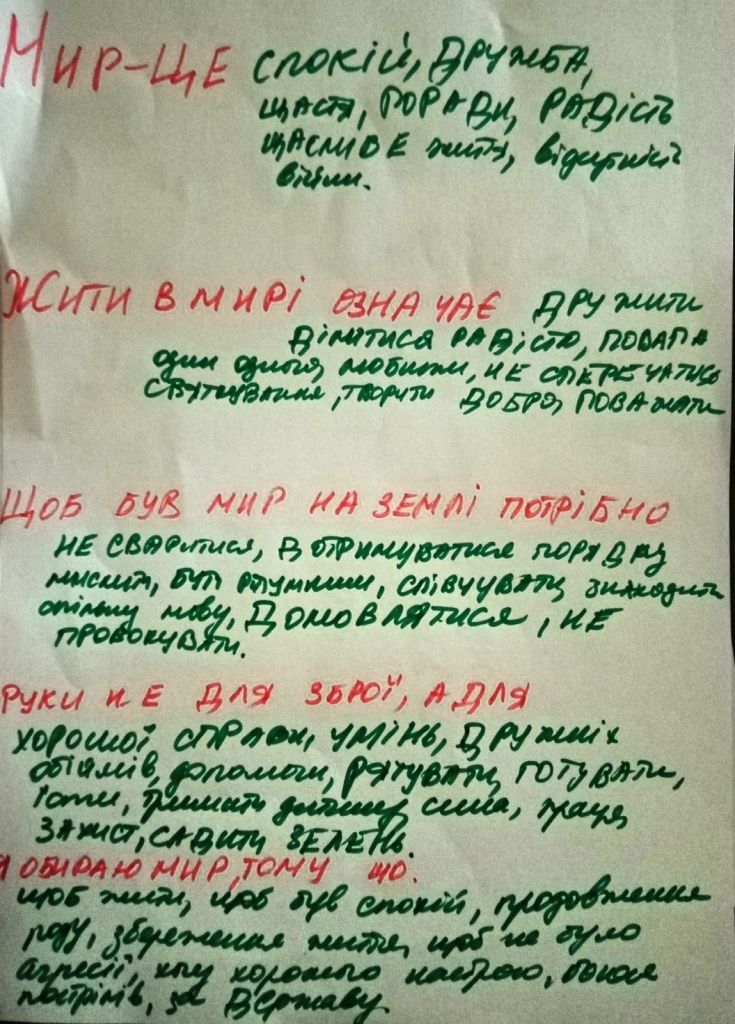 Мир-ЦЕ СПОКІЙ, ДРУЖБА,
щастя, ПОРАДИ, РАДІСТЬ
ЩАСЛИВЕ життя, відсутність
війни.
Жити в мирі означає дружити
ділитися радістю, ПОВАГА
один одного, любити, НЕ СПЕРЕЧАТИСЬ
творити ДОБРО, ПОВАЖАТИ
Щоб був мир на землі потрібно
НЕ СВАРИТИСЯ, ДОТРИМУВАТИСЯ ПОРЯДКУ
мислити, бути розумними, співчувати, знаходити
спільну мову, ДОМОВЛЯТИСЯ, НЕ
ПРОВОКУВАТИ.
РУКИ НЕ ДЛЯ ЗБРОЇ, А ДЛЯ
ХОРОШОЇ СПРАВИ, УМІНЬ, ДРУЖНІХ
обіймів, допомоги, РЯТУВАТИ, ГОТУВАТИ,
їсти, тримати дитину, сила, праця,
ЗАХИСТ, САДИТИ ЗЕЛЕНЬ.
Я ОБИРАЮ МИР, ТОМУ ЩО.
щоб жити, щоб був спокій, продовження
роду, збереження життя, щоб не було
агресії, хочу хорошого настрою, боюся
пострілів, за Державу.